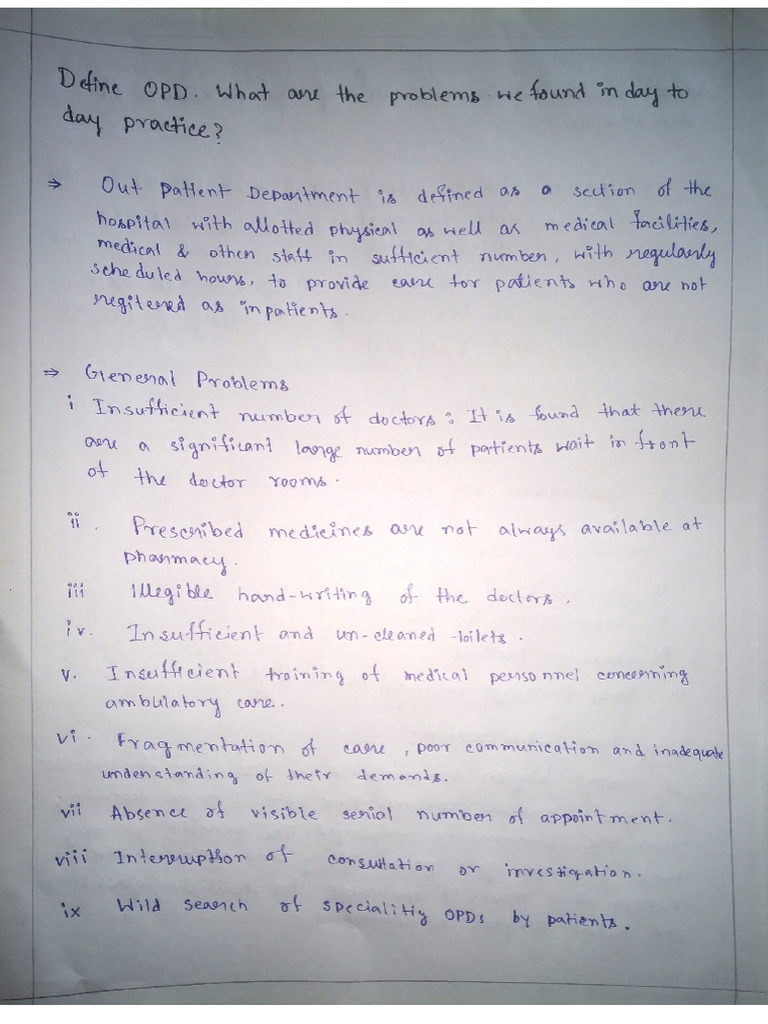 Define OPD. What are the problems we found in day to
day practice?
⇒ Out patient Department is defined as a section of the
hospital with allotted physical as well as medical facilities,
medical & other staff in sufficient number, with regularly
scheduled hours, to provide care for patients who are not
regitered as inpatients.
⇒ General Problems
i Insufficient number of doctors: It is found that there
are a significant large number of patients wait in front
of the doctor rooms.
ii. Prescribed medicines are not always available at
pharmacy.
iii Illegible hand-writing of the doctors.
iv. Insufficient and un-cleaned toilets.
v. Insufficient training of medical personnel concerning
ambulatory care.
vi. Fragmentation of care, poor communication and inadequate
understanding of their demands.
vii Absence of visible serial number of appointment.
viii Interruption of consultation or investigation.
ix Wild search of specialitiy OPDs by patients.